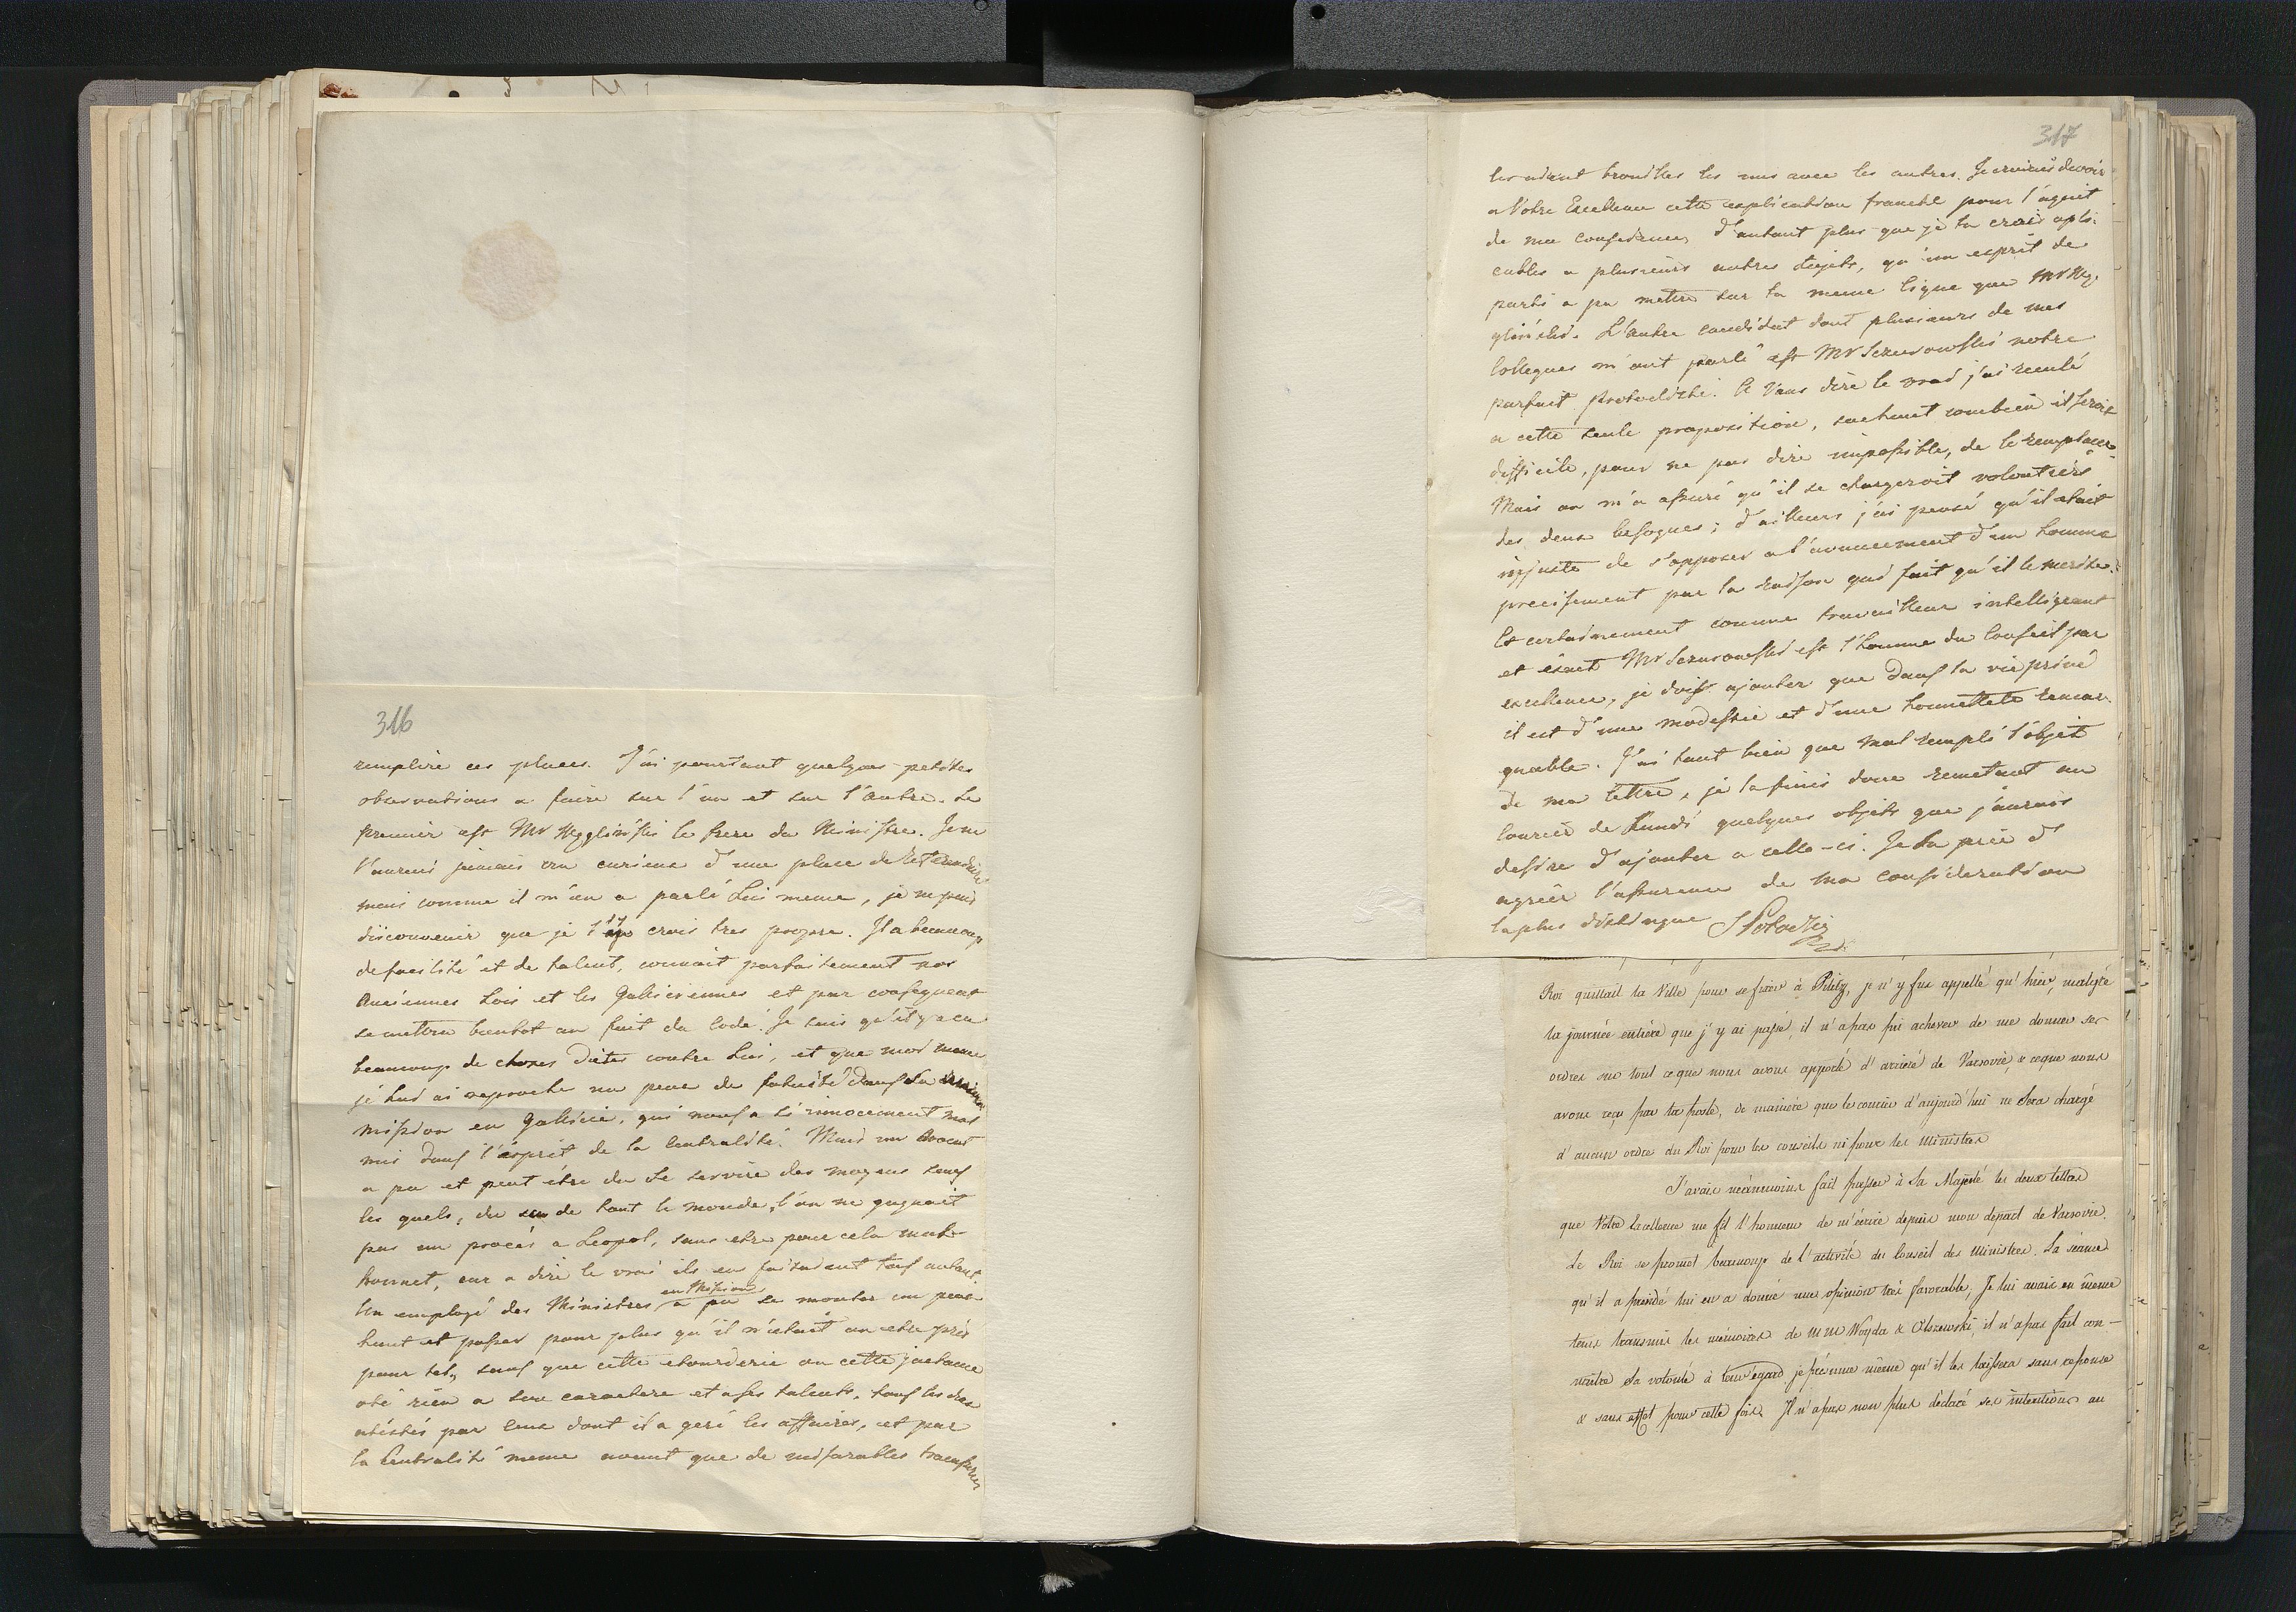 316
remplire ces places. J'ai pourtant quelques petites
observations a faire sur l'un et sur l'autre. Le
premier est Mr Węgliński le frere du Ministre. Je ne
l'aurais jamais cru curieux d'une place de Referendaire
mais comme il m'en a parlé Lui meme, je ne puis
disconvenir que je l'y crois tres propre. Il a beaucoup
de facilité et de talent, connait parfaitement nos
Anciennes Lois et les Galiciennes et par consequent
se mettra bientot au fait du Code. Je sais qu'il y a eu
beaucoup de choses dites contre Lui, et que moi meme
je Lui ai reproché un peu de fatuité dans sa
mission en Galicie, qui nous a si innocement mal
mis dans l'esprit de la Centralité. Mais un Avocat
a pu et peut etre du se servire des moyens sans
les quels, du su de tout le monde, l'on ne gagnait
pas un procés a Leopol, sans etre pour cela mal-
honnet, car a dire le vrai ils en faisaient tous autant.
Un employé des Ministres en Mission a pu se monter un peu
haut et passer pour plus qu'il n'etait ou etre pris
pour tel, sans que cette etourderie ou cette jactance
oté rien a son caractere et a ses talents, tous les deux
atéstés par ceux dont il a geré les affaires, et par
la Centralité meme avant que de miserables tracasseries
317
les aient brouilles les uns avec les autres. Je croiais devoir
a Votre Excellence cette explication franche pour l'aquit
de ma conscience, d'autant plus que je la crois apli-
cables a plusieurs autres sujets, qu'un esprit de
parti a pu mettre sur la meme ligne que Mr Wę-
gliński. L'autre candidat dont plusieurs de mes
Collegues m'ont parlé est Mr Szaniawski notre
parfait protocoliste. A Vous dire le vrai j'ai reculé
a cette seule proposition, sachant combien il serait
difficile, pour ne pas dire impossible, de le remplacer.
Mais on m'a assuré qu'il se chargeroit volontiers
des deux besognes; d'ailleurs j'ai pensé qu'il etait
injuste de s'opposer a l'avancement d'un homme
precisement par la raison qui fait qu'il le merite.
Et certainement comme travailleur intelligeant
et exact Mr est l'homme du Conseil par
excellence, je dois ajouter que dans la vie privé
il est d'une modestie et d'une honnetteté remar-
quable. J'ai tant bien que mal rempli l'objet
de ma lettre, je la finis donc remetant au
Courier de Lundi quelques objets que j'aurais
desiré d'ajouter a celle-ci. Je La prie d'
agréer l'assurance de ma consideration
la plus distingue SPotocki
Roi quittait la Ville pour se fixer à Pilitz, je n'y fus appellé qu'hier, malgré
la journée entière que j'y ai passé, il n'a pas pu achever de me donner ses
ordres sur tout ce que nous avons apporté d'arriéré de Varsovie, & ce que nous
avons reçu par la poste, de manière que le courier d'aujourd'hui ne sera chargé
d'aucun ordre du Roi pour les conseils ni pour les Ministres
J'avais néanmoins fait passer à Sa Majesté les deux lettres
que Votre Excellence me fit l'honneur de m'écrire depuis mon départ de Varsovie.
Le Roi se promet beaucoup de l'activité du Conseil des Ministres. La séance
qu'il a présidé lui en a donné une opinion très favorable, Je lui avais en même
tems transmis les mémoires de MM Woyda & Olszewski, il n'a pas fait con-
naître Sa volonté à leur égard je présume même qu'il les laissera sans reponse
& sans effet pour cette fois. Il n'a pas non plus déclaré ses intentions au